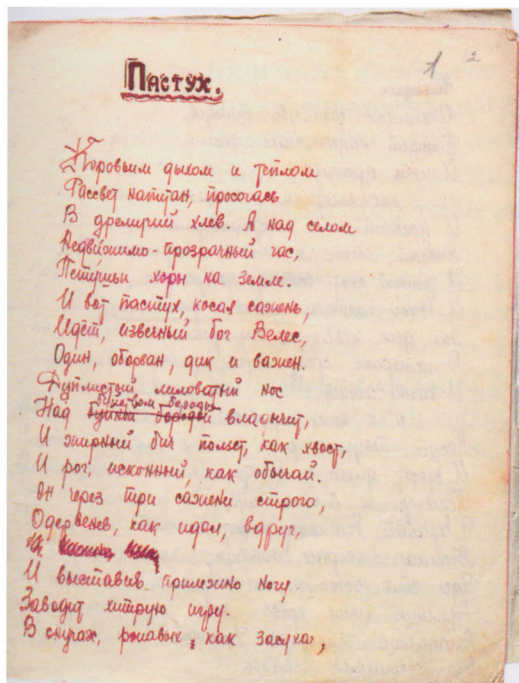 1 2
Пастух.
Коровьим дыхом и теплом
Рассвет напитан, просочась
В дремучий хлев. А над селом
Недвижимо-прозрачный час,
Петушьи хоры на земле.
И вот пастух, косая сажень,
Идёт, извечный бог Велес,
Один, оборван, дик и важен.
Дуплистый лиловатый нос
бороды
Над буйной бородой владычит,
И жирный бич ползет, как хвост,
И рог, исконный, как обычай.
Он через три сажени строго,
Одеревенев, как идол, вдруг,
И выставив прилежно ногу
Заводит хитрую игру
В слухах, ржавых, как засуха,